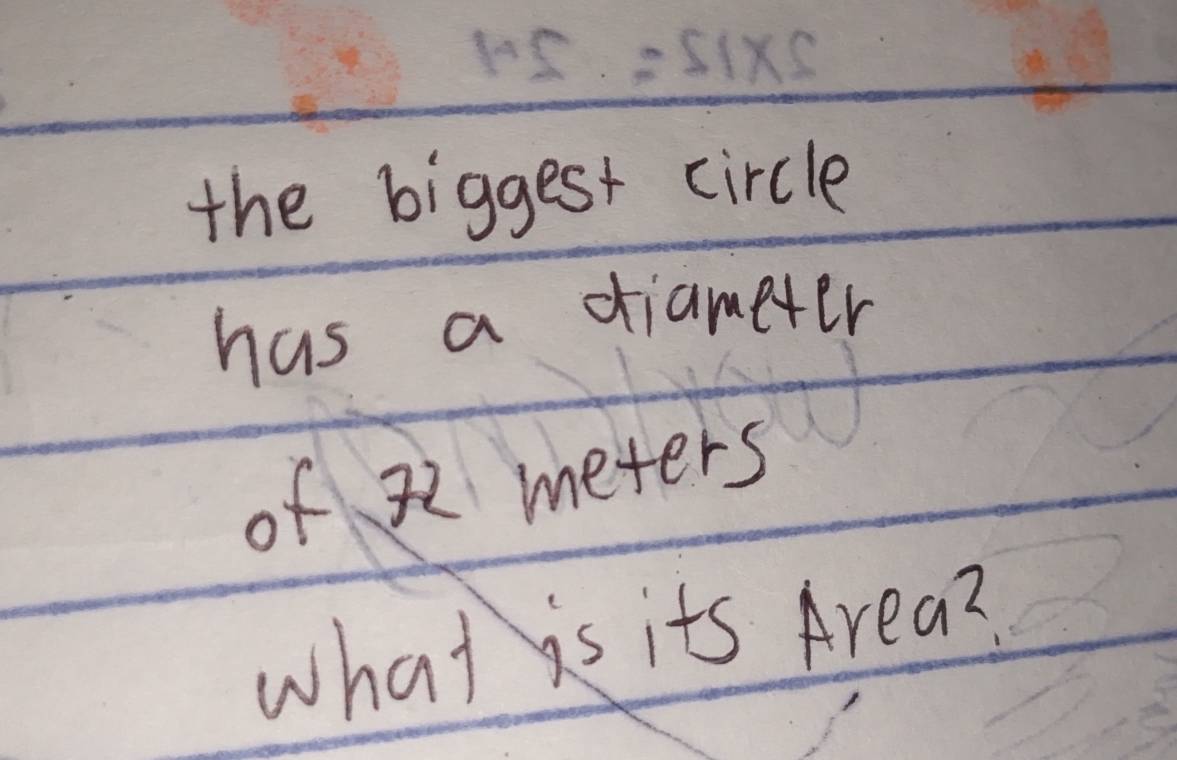 the biggest circle
has a diameter
of 72 meters
what is its Area?